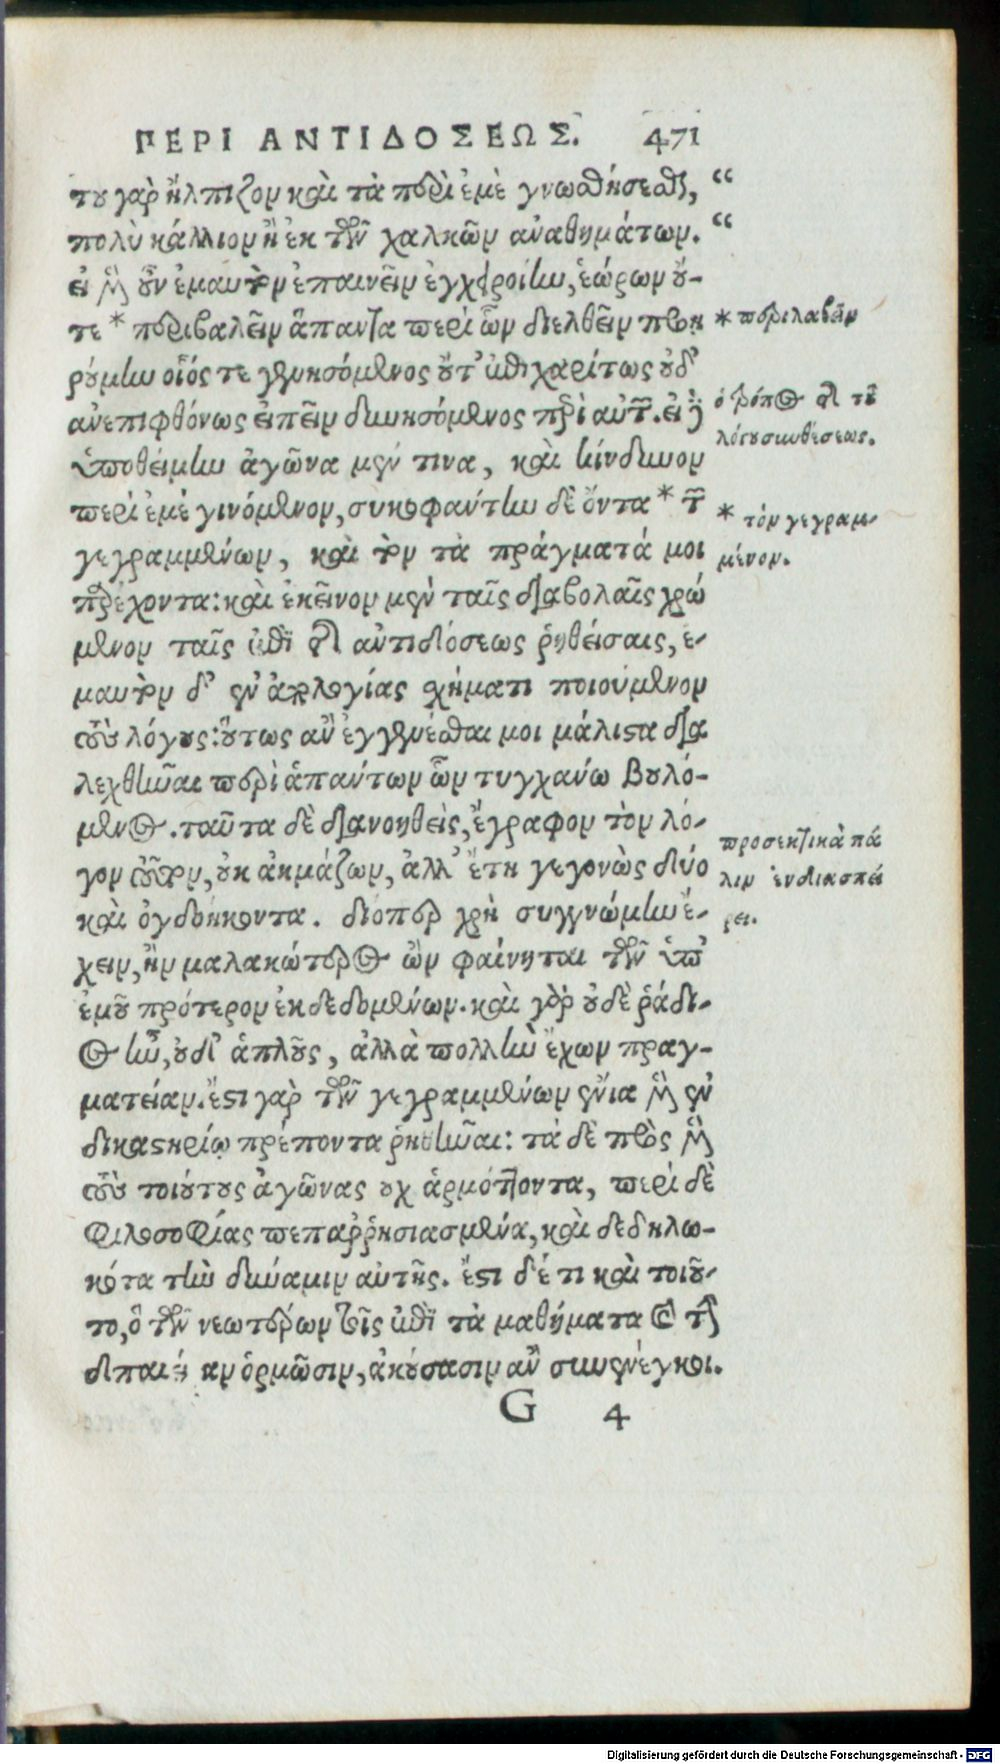 ΠΕΡΙ ΑΝΤΙΔΟΣΕΩΣ. 471
του γὰρ ἤλπιζον καὶ τὰ περὶ ἐμὲ γνωσθήσεσθαι, “
πολὺ κάλλιον ἢ ἐκ τῶν χαλκῶν ἀναθημάτων. “
εἰ μὲν οὖν ἐμαυτὸν ἐπαινεῖν ἐγχειροίην, ἑώρων οὔ-
τε * περιβαλεῖν ἅπαντα περὶ ὧν διελθεῖν προῃ
ρούμην οἷός τε γενησόμενος οὔτ' ἐπιχαρίτως οὐδ'
ἀνεπιφθόνως εἰπεῖν δυνησόμενος περὶ αὐτῶν. εἰ δ'
ὑποθείμην ἀγῶνα μέν τινα, καὶ κίνδυνον
περὶ ἐμὲ γινόμενον, συκοφάντην δὲ ὄντα * τῶν
γεγραμμένων, καὶ τὸν τὰ πράγματά μοι
παρέχοντα: καὶ ἐκεῖνον μὲν ταῖς διαβολαῖς χρώ
μενον ταῖς ἐπὶ τῆς ἀντιδόσεως ῥηθείσαις, ἐ-
μαυτὸν δ' ἐν ἀπολογίας σχήματι ποιούμενον
τοὺς λόγους: οὕτως ἂν ἐγγενέσθαι μοι μάλιστα δια
λεχθῆναι περὶ ἁπάντων ὧν τυγχάνω βουλό-
μενος. ταῦτα δὲ διανοηθεὶς, ἔγραφον τὸν λό-
γον τοῦτον, οὐκ ἀκμάζων, ἀλλ' ἔτη γεγονὼς δύο
καὶ ὀγδοήκοντα. διόπερ χρὴ συγγνώμην ἔ-
χειν, ἢν μαλακώτερος ὢν φαίνηται τῶν ὑπ'
ἐμοῦ πρότερον ἐκδεδομένων. καὶ γὰρ οὐδὲ ῥάδι-
ος ἦν, οὐδ' ἁπλοῦς, ἀλλὰ πολλὴν ἔχων πραγ-
ματείαν. ἔστι γὰρ τῶν γεγραμμένων ἔνια μὲν ἐν
δικαστηρίῳ πρέποντα ῥηθῆναι: τὰ δὲ πρὸς μὲν
τοὺς τοιούτους ἀγῶνας οὐχ ἁρμόττοντα, περὶ δὲ
φιλοσοφίας πεπαῤῥησιασμένα, καὶ δεδηλω-
κότα τὴν δύναμιν αὐτῆς. ἔστι δέ τι καὶ τοιοῦ-
το, ὃ τῶν νεωτέρων τοῖς ἐπὶ τὰ μαθήματα καὶ τὴν
ὁρμῶσιν, ἀκούσασιν ἂν συνενέγκοι.
G 4
* περιλαβεῖν
ὁ τρόπος τῆς τοῦ
λόγου συνθέσεως.
* τὸν γεγραμ-
μένον.
προσεκτικὰ πά
λιν ἐνδιασπεί
ρει.
Digitalisierung gefördert durch die Deutsche Forschungsgemeinschaft - DFG